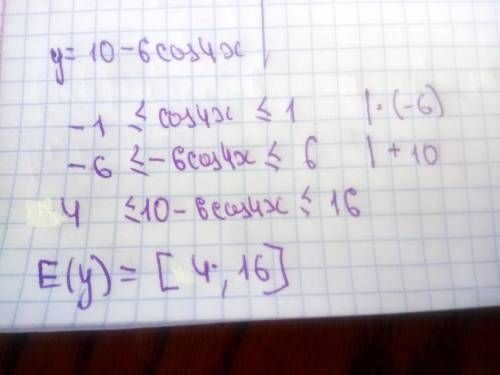 y = 10 - 6cos4x
-1 ≤ cos4x ≤ 1 | · (-6)
-6 ≤ -6cos4x ≤ 6 | + 10
4 ≤ 10 - 6cos4x ≤ 16
E(y) = [4; 16]